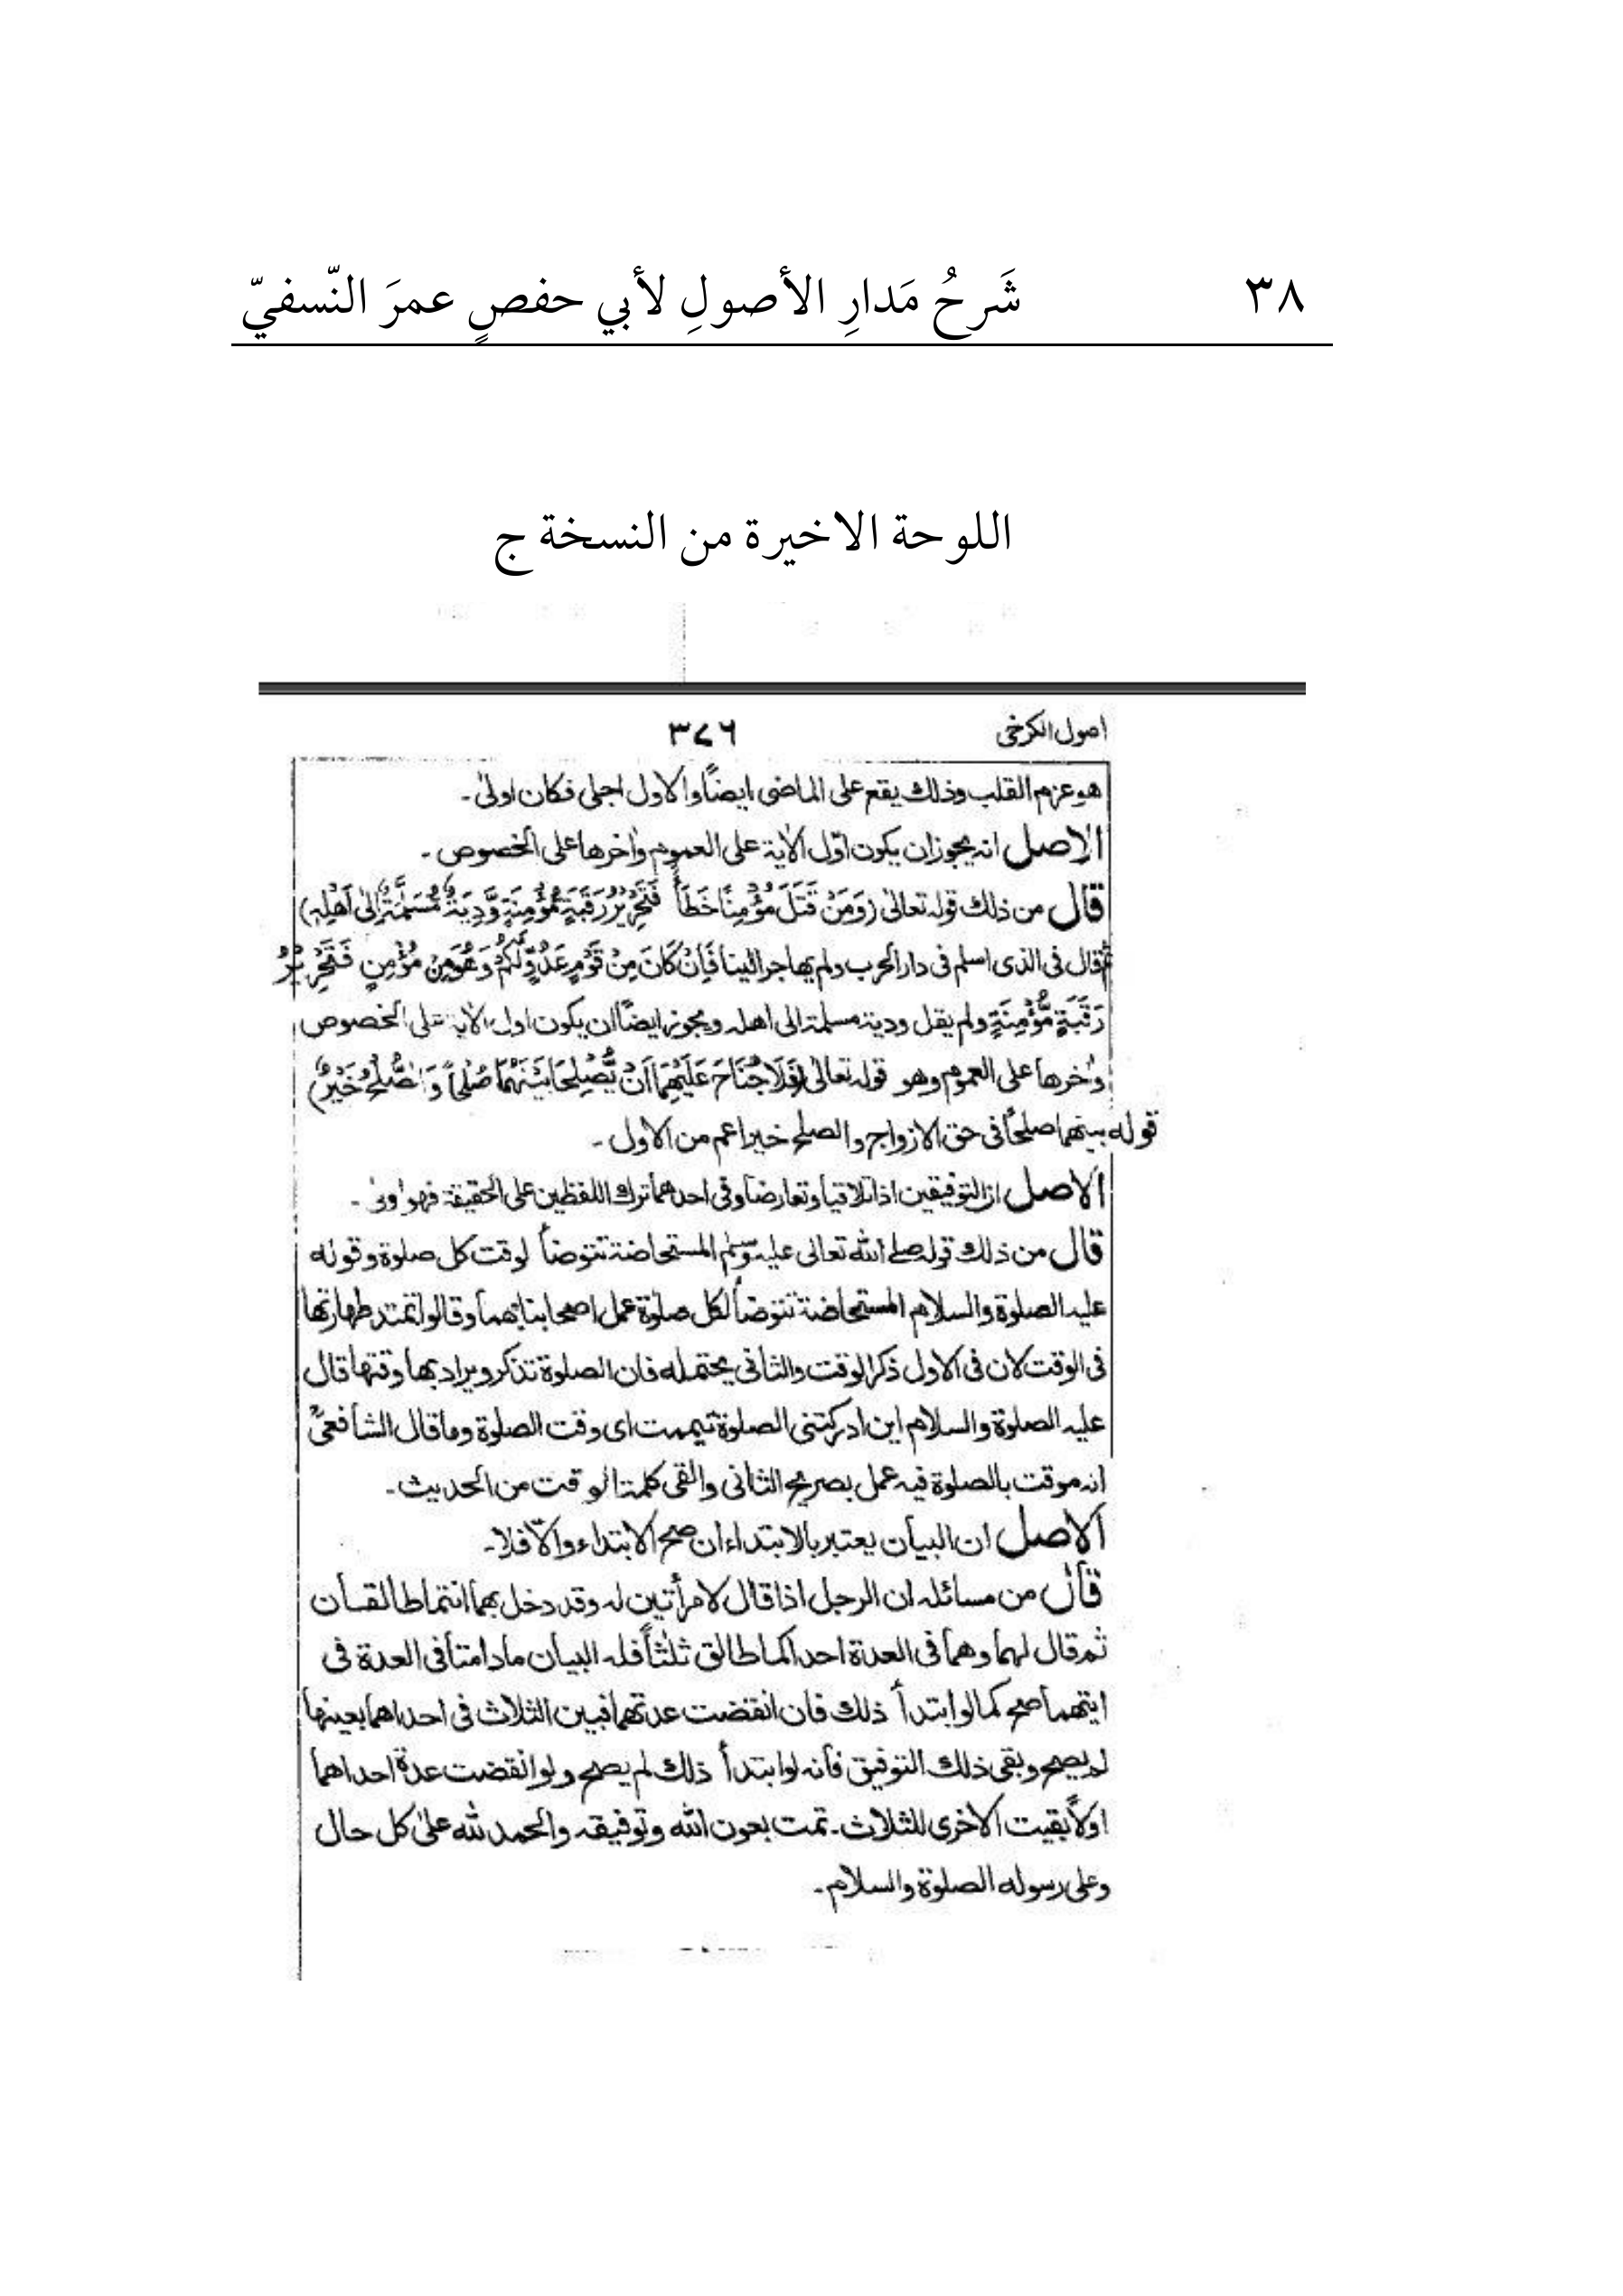 ٣٨ شَرحُ مَدارِ الأصولِ لأبي حفصٍ عمرَ النّسفيّ
اللوحة الاخيرة من النسخة ج
اصول الكرخی ٣٧٦
هو عزم القلب وذلك يقع على الماضى ايضاً والاول اجلى فكان اولىٰ۔
الاصل انه يجوز ان يكون اوّل الاٰية على العموم واٰخرها على الخصوص ۔
قال من ذلك قوله تعالىٰ (وَمَنْ قَتَلَ مُؤْمِنًا خَطَأً فَتَحْرِيْرُ رَقَبَةٍ مُّؤْمِنَةٍ وَّدِيَةٌ مُّسَلَّمَةٌ إِلىٰ اَهْلِهٖ)
ثم قال فى الذى اسلم فى دار الحرب ولم يهاجر الينا فَاِنْ كَانَ مِنْ قَوْمٍ عَدُوٍّ لَّكُمْ وَهُوَ مِنْ مُؤْمِنٍ فَتَحْرِيْرُ
رَقَبَةٍ مُّؤْمِنَةٍ ولم يقل ودية مسلمة الى اهله ويجوز ايضاً ان يكون اول الاٰية على الخصوص
واٰخرها على العموم وهو قوله تعالىٰ (فَلَا جُنَاحَ عَلَيْهِمَا اَنْ يُّصْلِحَا بَيْنَهُمَا صُلْحاً وَالصُّلْحُ خَيْرٌ)
قوله بينهما صلحاً فى حق الازواج والصلح خير اعم من الاول ۔
الاصل ان التوفيقين اذا تلاقيا وتعارضا وفى احدهما ترك اللفظين على الحقيقة فهو اولىٰ ۔
قال من ذلك قوله صلى الله تعالى عليه وسلم المستحاضة تتوضأ لوقت كل صلوة وقوله
عليه الصلوة والسلام المستحاضة تتوضأ لكل صلوة عمل اصحابنا بهما وقالوا تمتد طهارتها
فى الوقت لان فى الاول ذكر الوقت والثانى يحتمله فان الصلوة تذكر ويراد بها وقتها قال
عليه الصلوة والسلام اين ادركتنى الصلوة تيممت اى وقت الصلوة وما قال الشافعىؒ
انه موقت بالصلوة فيه عمل بصريح الثانى والقى كلمة الوقت من الحديث ۔
الاصل ان البيان يعتبر بالابتداء ان صح الابتداء والّا فلا۔
قال من مسائله ان الرجل اذا قال لامرأتين له وقد دخل بهما انتما طالقسان
ثم قال لهما وهما فى العدة احداكما طالق ثلٰثاً فله البيان مادامتا فى العدة فى
ايتهما صح كما لو ابتدأ ذلك فان انقضت عدتهما فبين الثلاث فى احداهما بعينها
لم يصح وبقى ذلك التوفيق فانه لو ابتدأ ذلك لم يصح ولو انقضت عدة احداهما
اولاً بقيت الاخرى للثلاث ۔ تمت بعون الله وتوفيقه والحمد لله علىٰ كل حال
وعلى رسوله الصلوة والسلام ۔